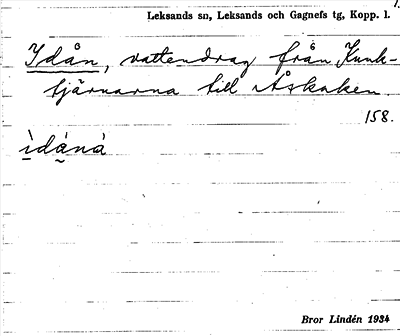 Leksands sn, Leksands och Gagnefs tg, Kopp. l.
Idån, vattendrag från Kunk-
tjärnarna till Åskaken
158.
ìdánà
Bror Lindén 1934